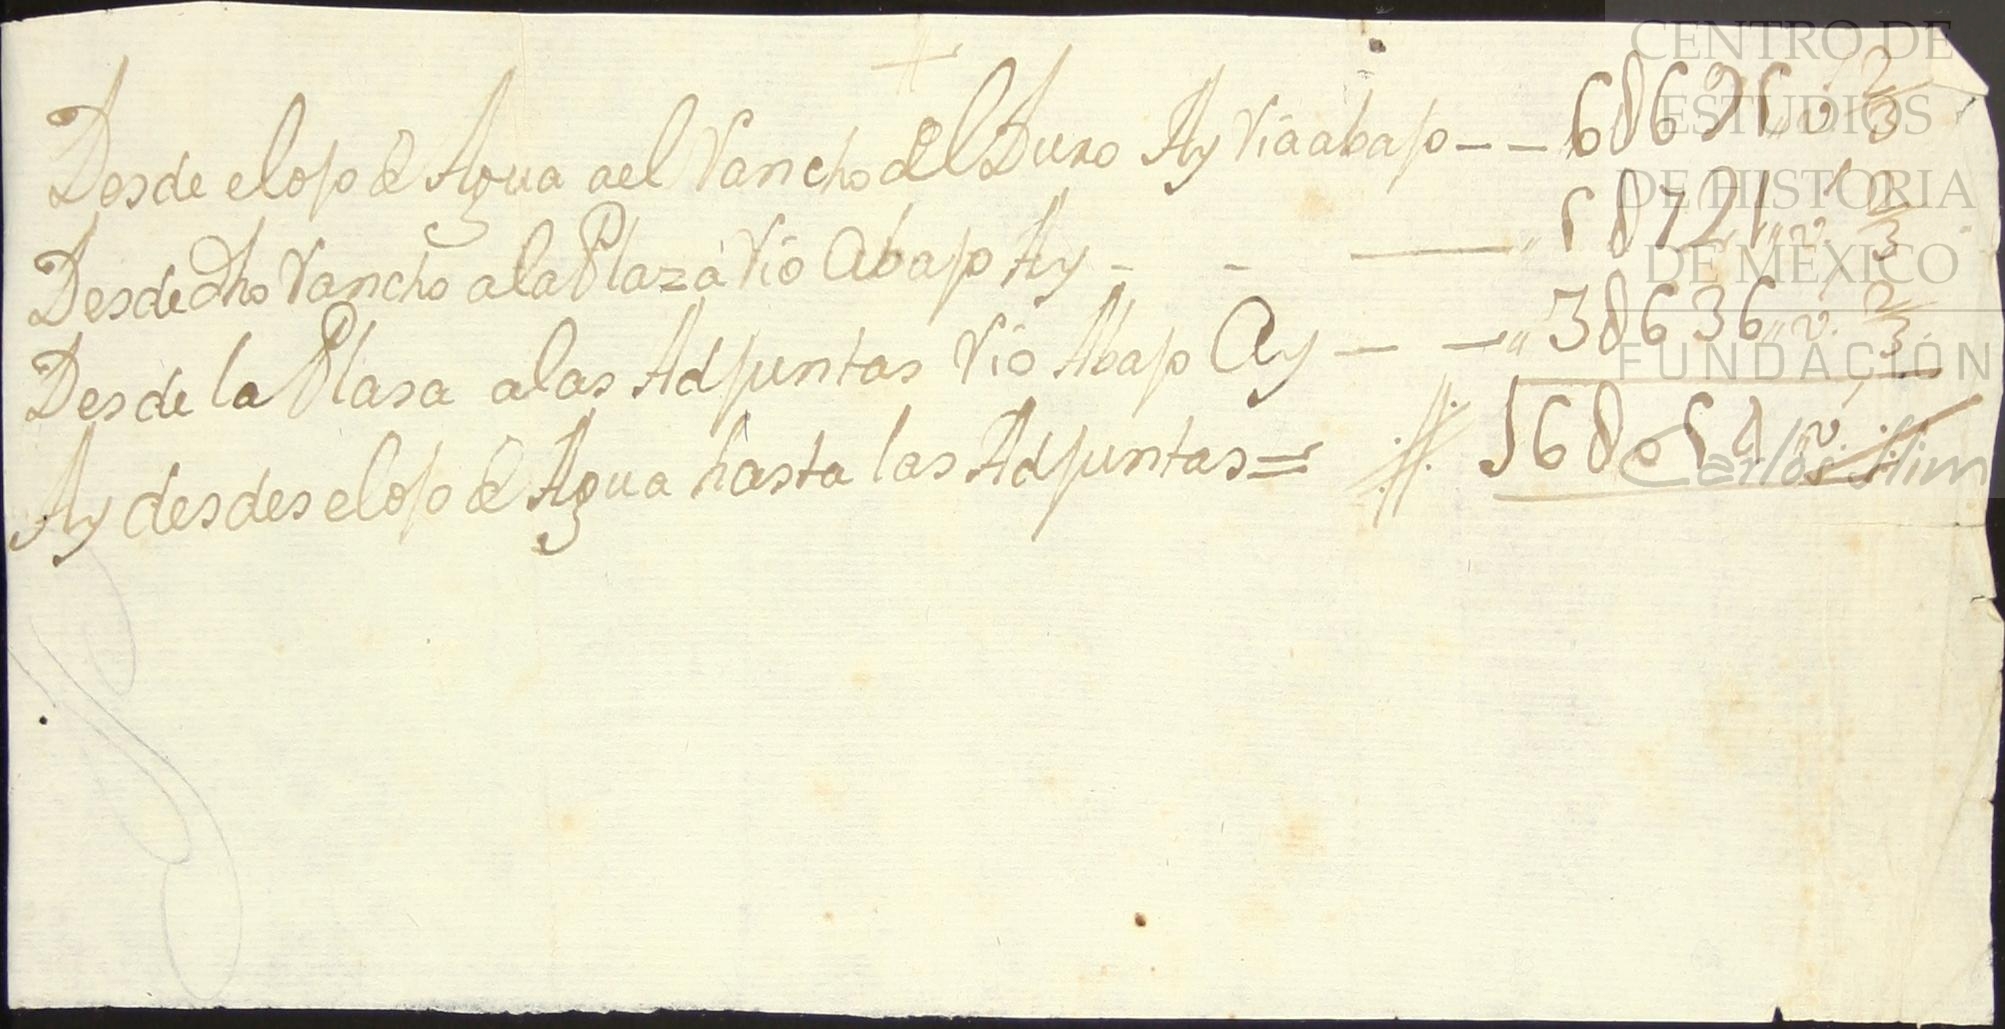 Desde el ojo de Agua ael Rancho del Duro Ay Rio abajo - - 6U691 v. 2/3
Desde dho Rancho a la Plaza Rio Abajo Ay - - — 5U721 v. 2/3
Desde la Plasa a las Adjuntas Rio Abajo Ay — — 3U636 v. 2/3
Ay desdes el ojo de Agua hasta las Adjuntas = 16U050 v.
CENTRO DE
ESTUDIOS
DE HISTORIA
DE MÉXICO
FUNDACIÓN
Carlos Slim